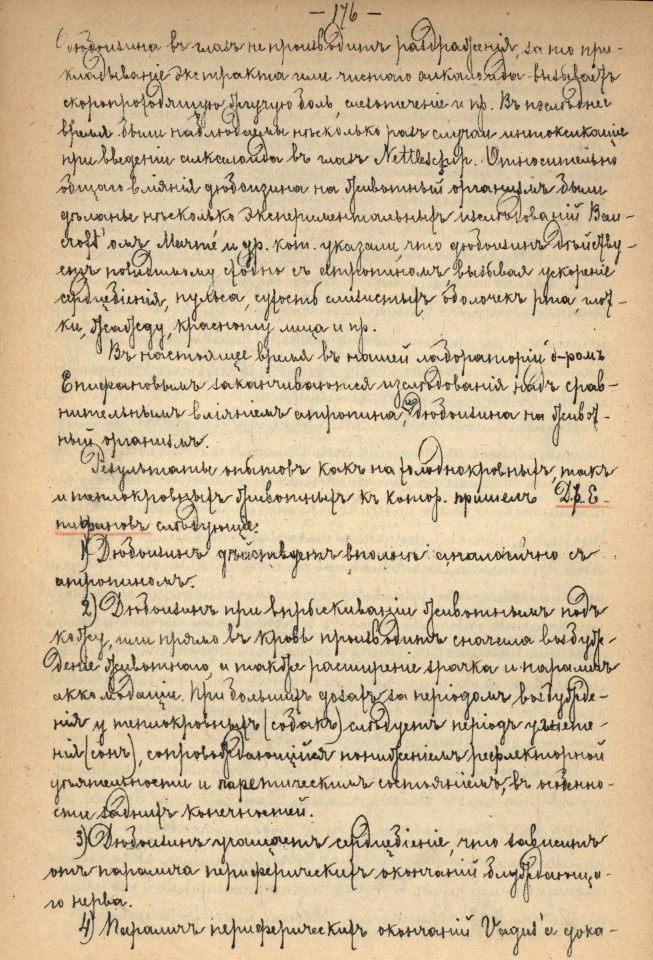 — 176 —
Дюбоизина въ глазъ не производитъ раздраженія, за то при-
кладываніе экстракта или чистаго алкалоида вызываетъ
скоропроходящую жгучую боль, слезотеченіе и пр. Въ послѣднее
время были наблюдаемы нѣсколько разъ случаи интоксикаціи
при введеніи алкалоида въ глазъ Nettleship. Относительно
общаго вліянія дюбоизина на животный организмъ были
дѣланы нѣсколько экспериментальныхъ изслѣдованій Ban-
croft'омъ Marmé и др. кот. указали, что дюбоизинъ дѣйству-
етъ повидимому сходно съ атропиномъ, вызывая ускореніе
сердцебіенія, пульса, сухость слизистыхъ оболочекъ рта, глот-
ки, жажду, красноту лица и пр.
Въ настоящее время въ нашей лабораторіи д-ромъ
Епифановымъ заканчиваются изслѣдованія надъ срав-
нительнымъ вліяніемъ атропина, и дюбоизина на живот-
ный организмъ.
Результаты опытовъ какъ на холоднокровныхъ, такъ
и теплокровныхъ животныхъ къ котор. пришелъ Др. Е-
пифановъ слѣдующіе:
1) Дюбоизинъ дѣйствуетъ вполнѣ аналогично съ
атропиномъ.
2) Дюбоизинъ при впрыскиваніи животнымъ подъ
кожу, или прямо въ кровь производитъ сначала возбуж-
деніе животнаго, а также расширеніе зрачка и параличъ
аккомодаціи. При большихъ дозахъ за періодомъ возбужде-
нія у теплокровныхъ (собакъ) слѣдуетъ періодъ угнете-
нія (сонъ), сопровождающійся пониженіемъ рефлекторной
дѣятельности и паретическимъ состояніемъ, въ особенно-
сти заднихъ конечностей.
3) Дюбоизинъ учащаетъ сердцебіеніе, что зависитъ
отъ паралича периферическихъ окончаній блуждающа-
го нерва.
4) Параличъ периферическихъ окончаній Vagus'а дока-